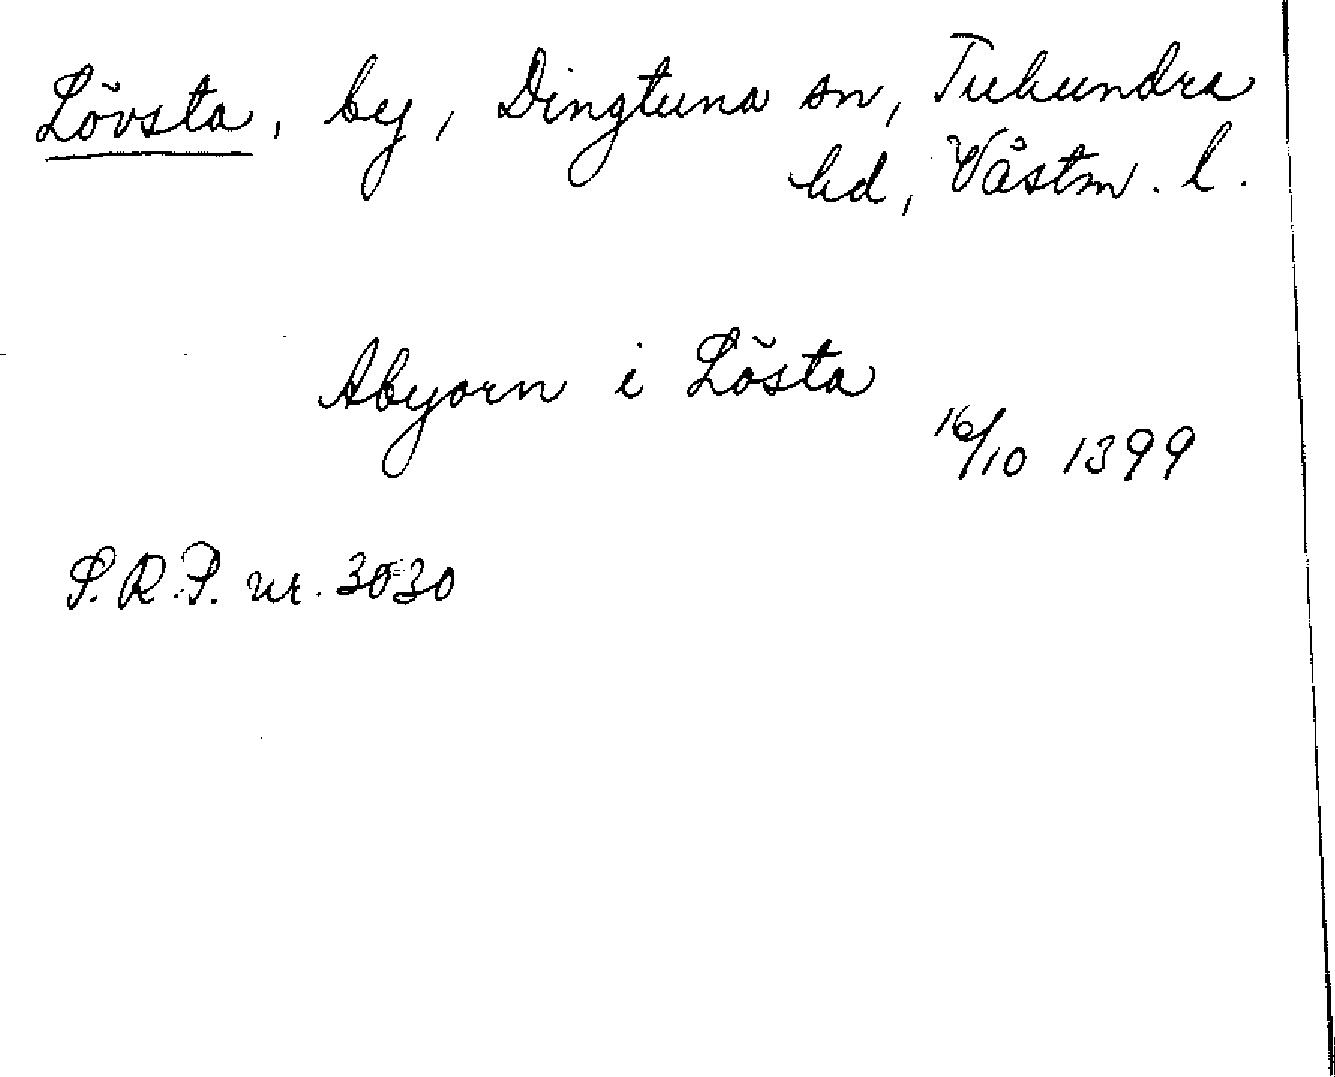 Lövsta, by, Dingtuna sn, Tuhundra
hd, Västm. l.
Abyorn i Lösta
16/10 1399
S.R.P. nr. 3030